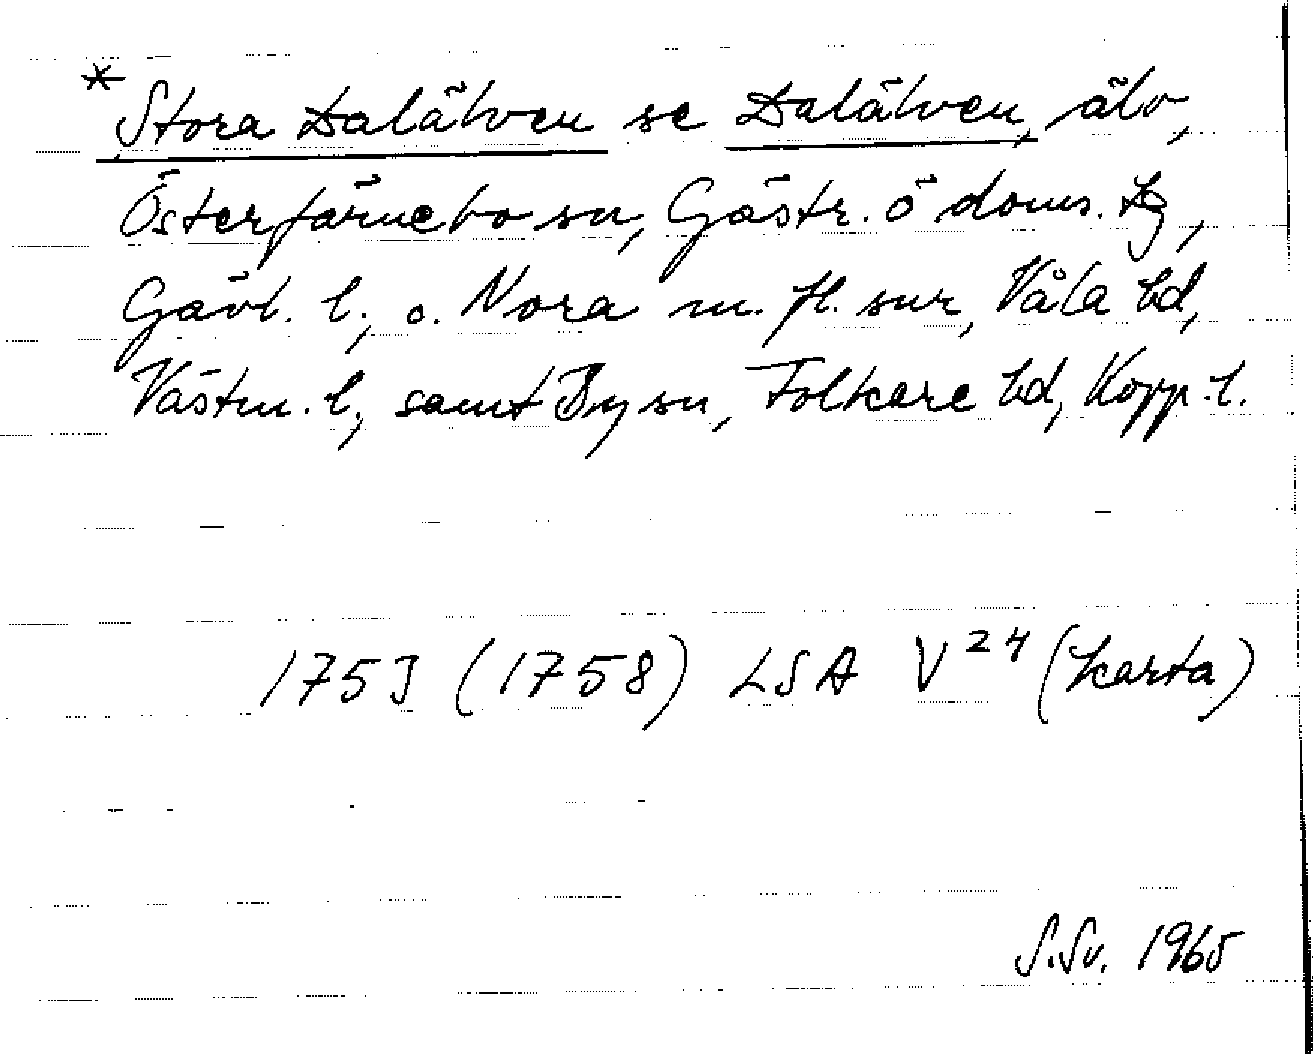 * Stora Dalälven se Dalälven, älv,
Österfärnebo sn, Gästr. ö doms. tg,
Gävl. l., o. Nora m. fl. snr, Våla hd,
Västm. l., samt By sn, Folkare hd, Kopp. l.
1753 (1758) LSA V²⁴ (karta)
S.Sv. 1965